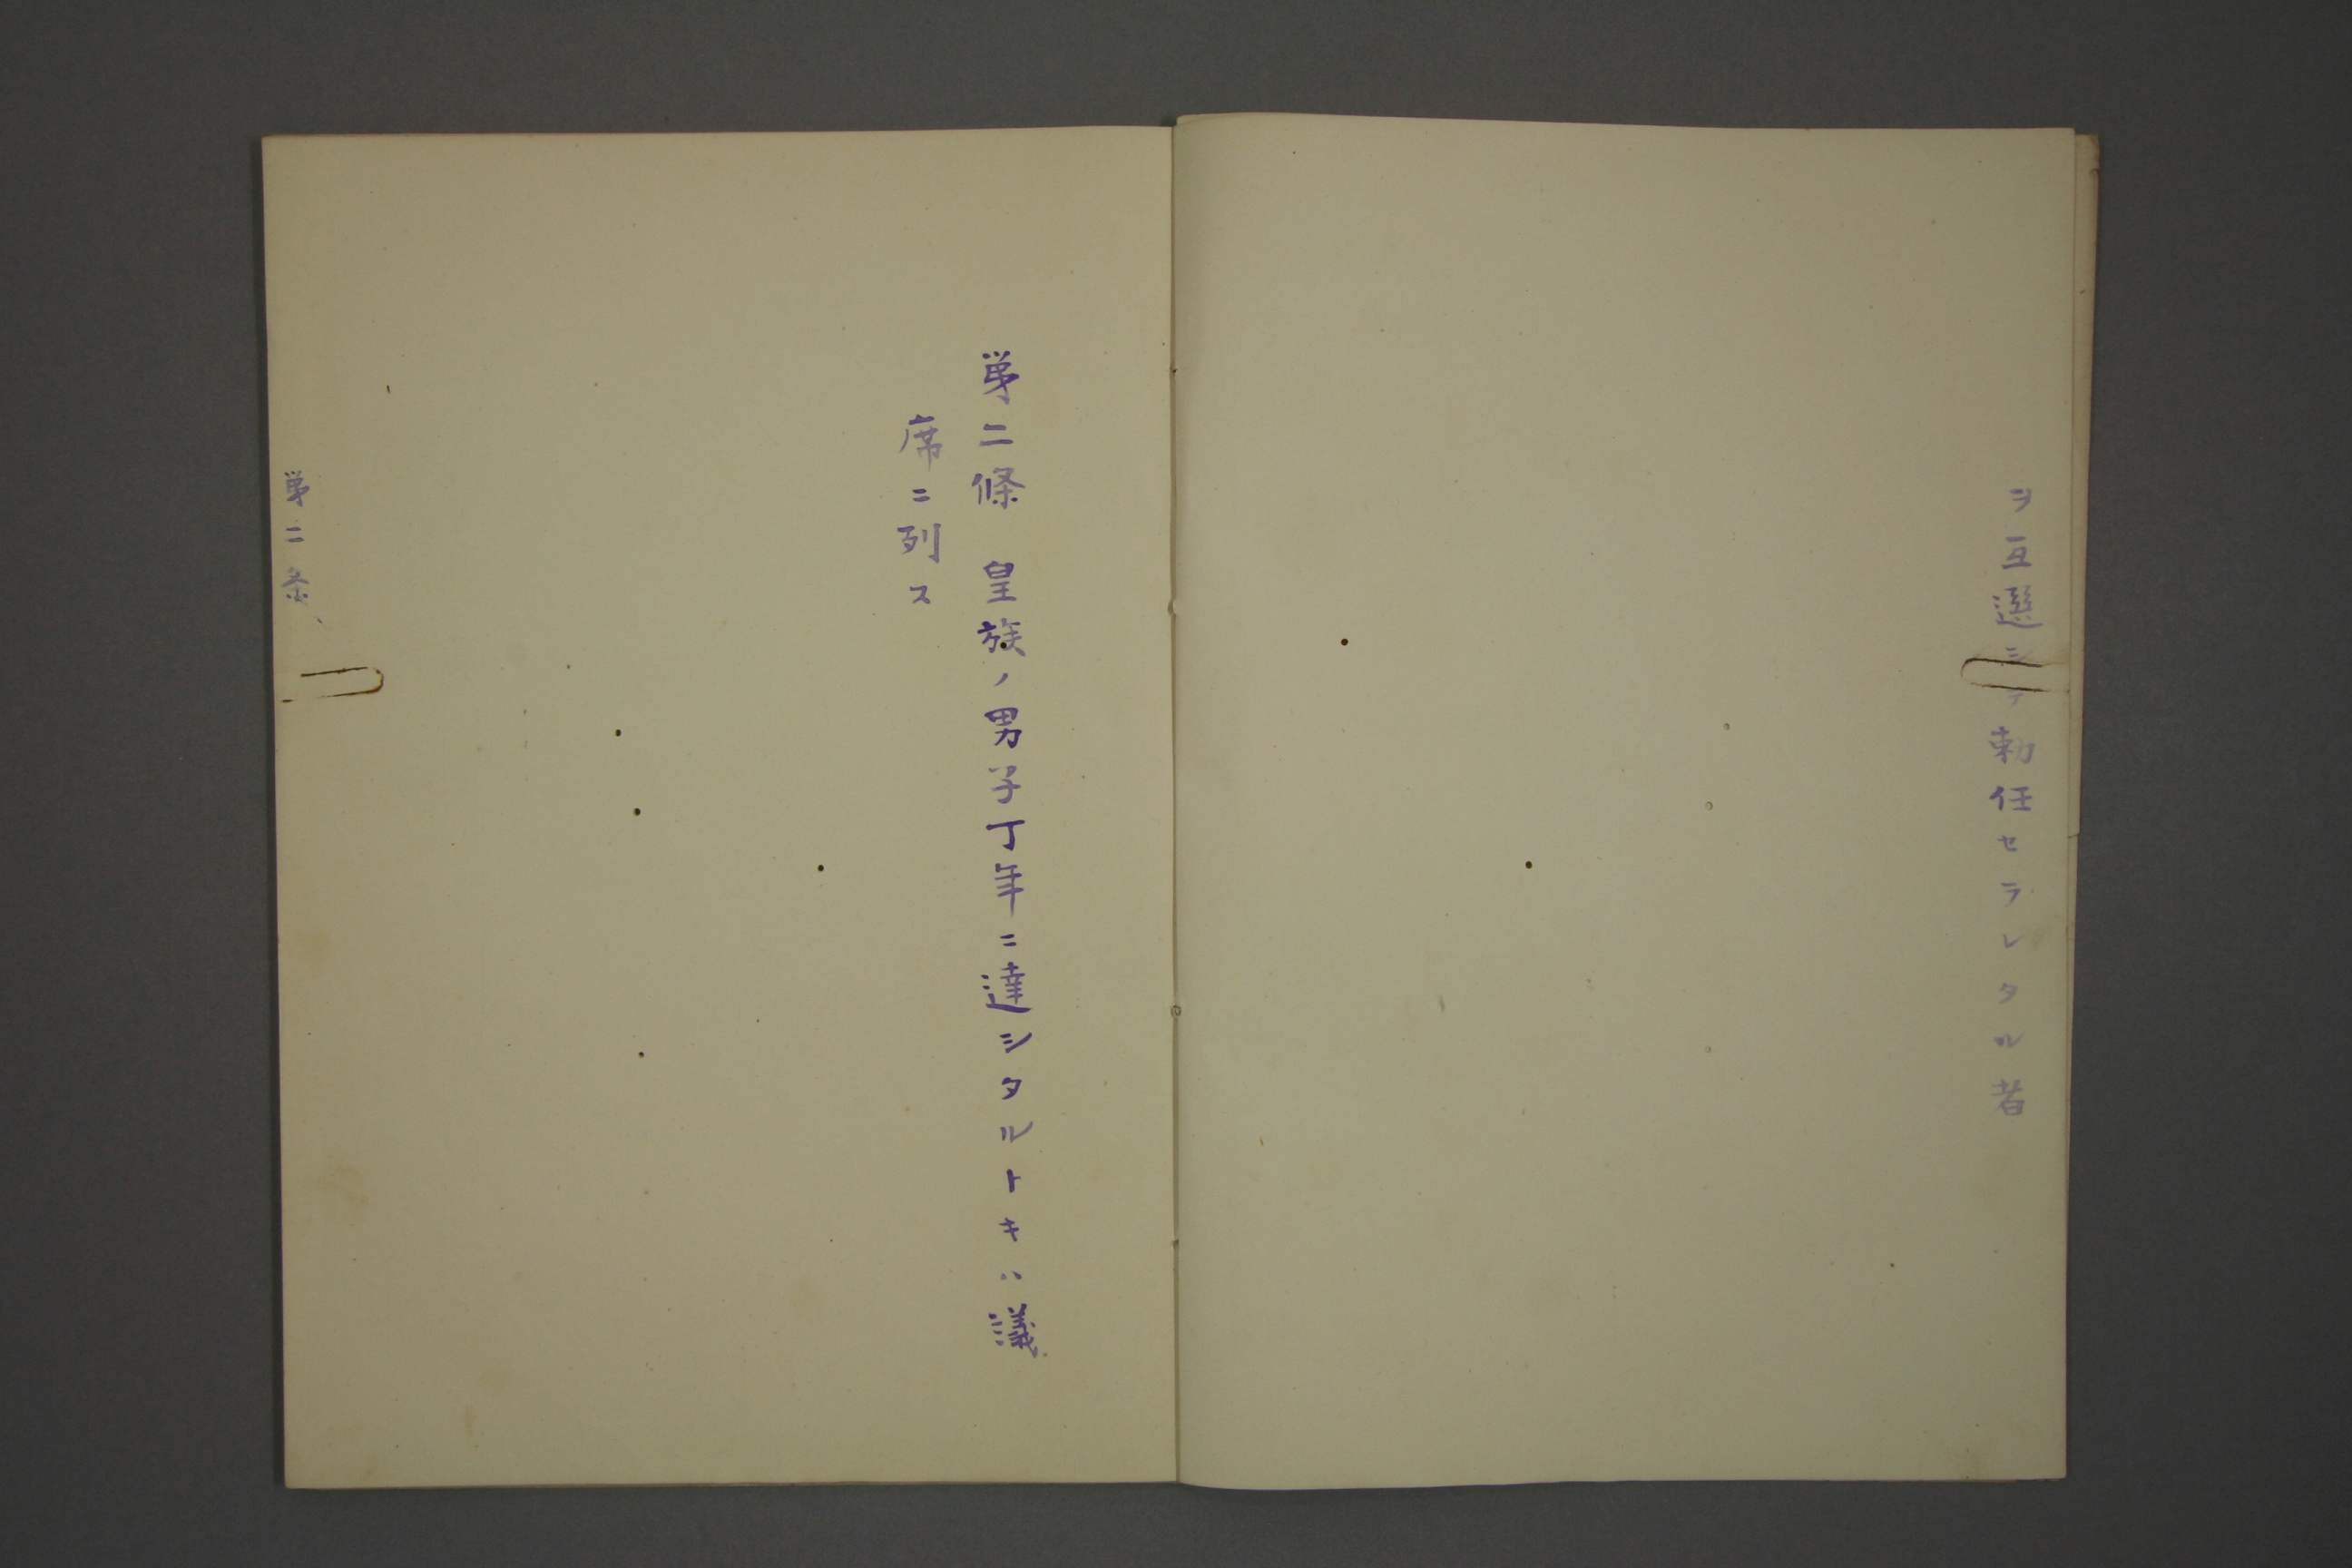 ヲ互選シテ勅任セラレタル者
第二條　皇族ノ男子丁年ニ達シタルトキハ議
席ニ列ス
第二条